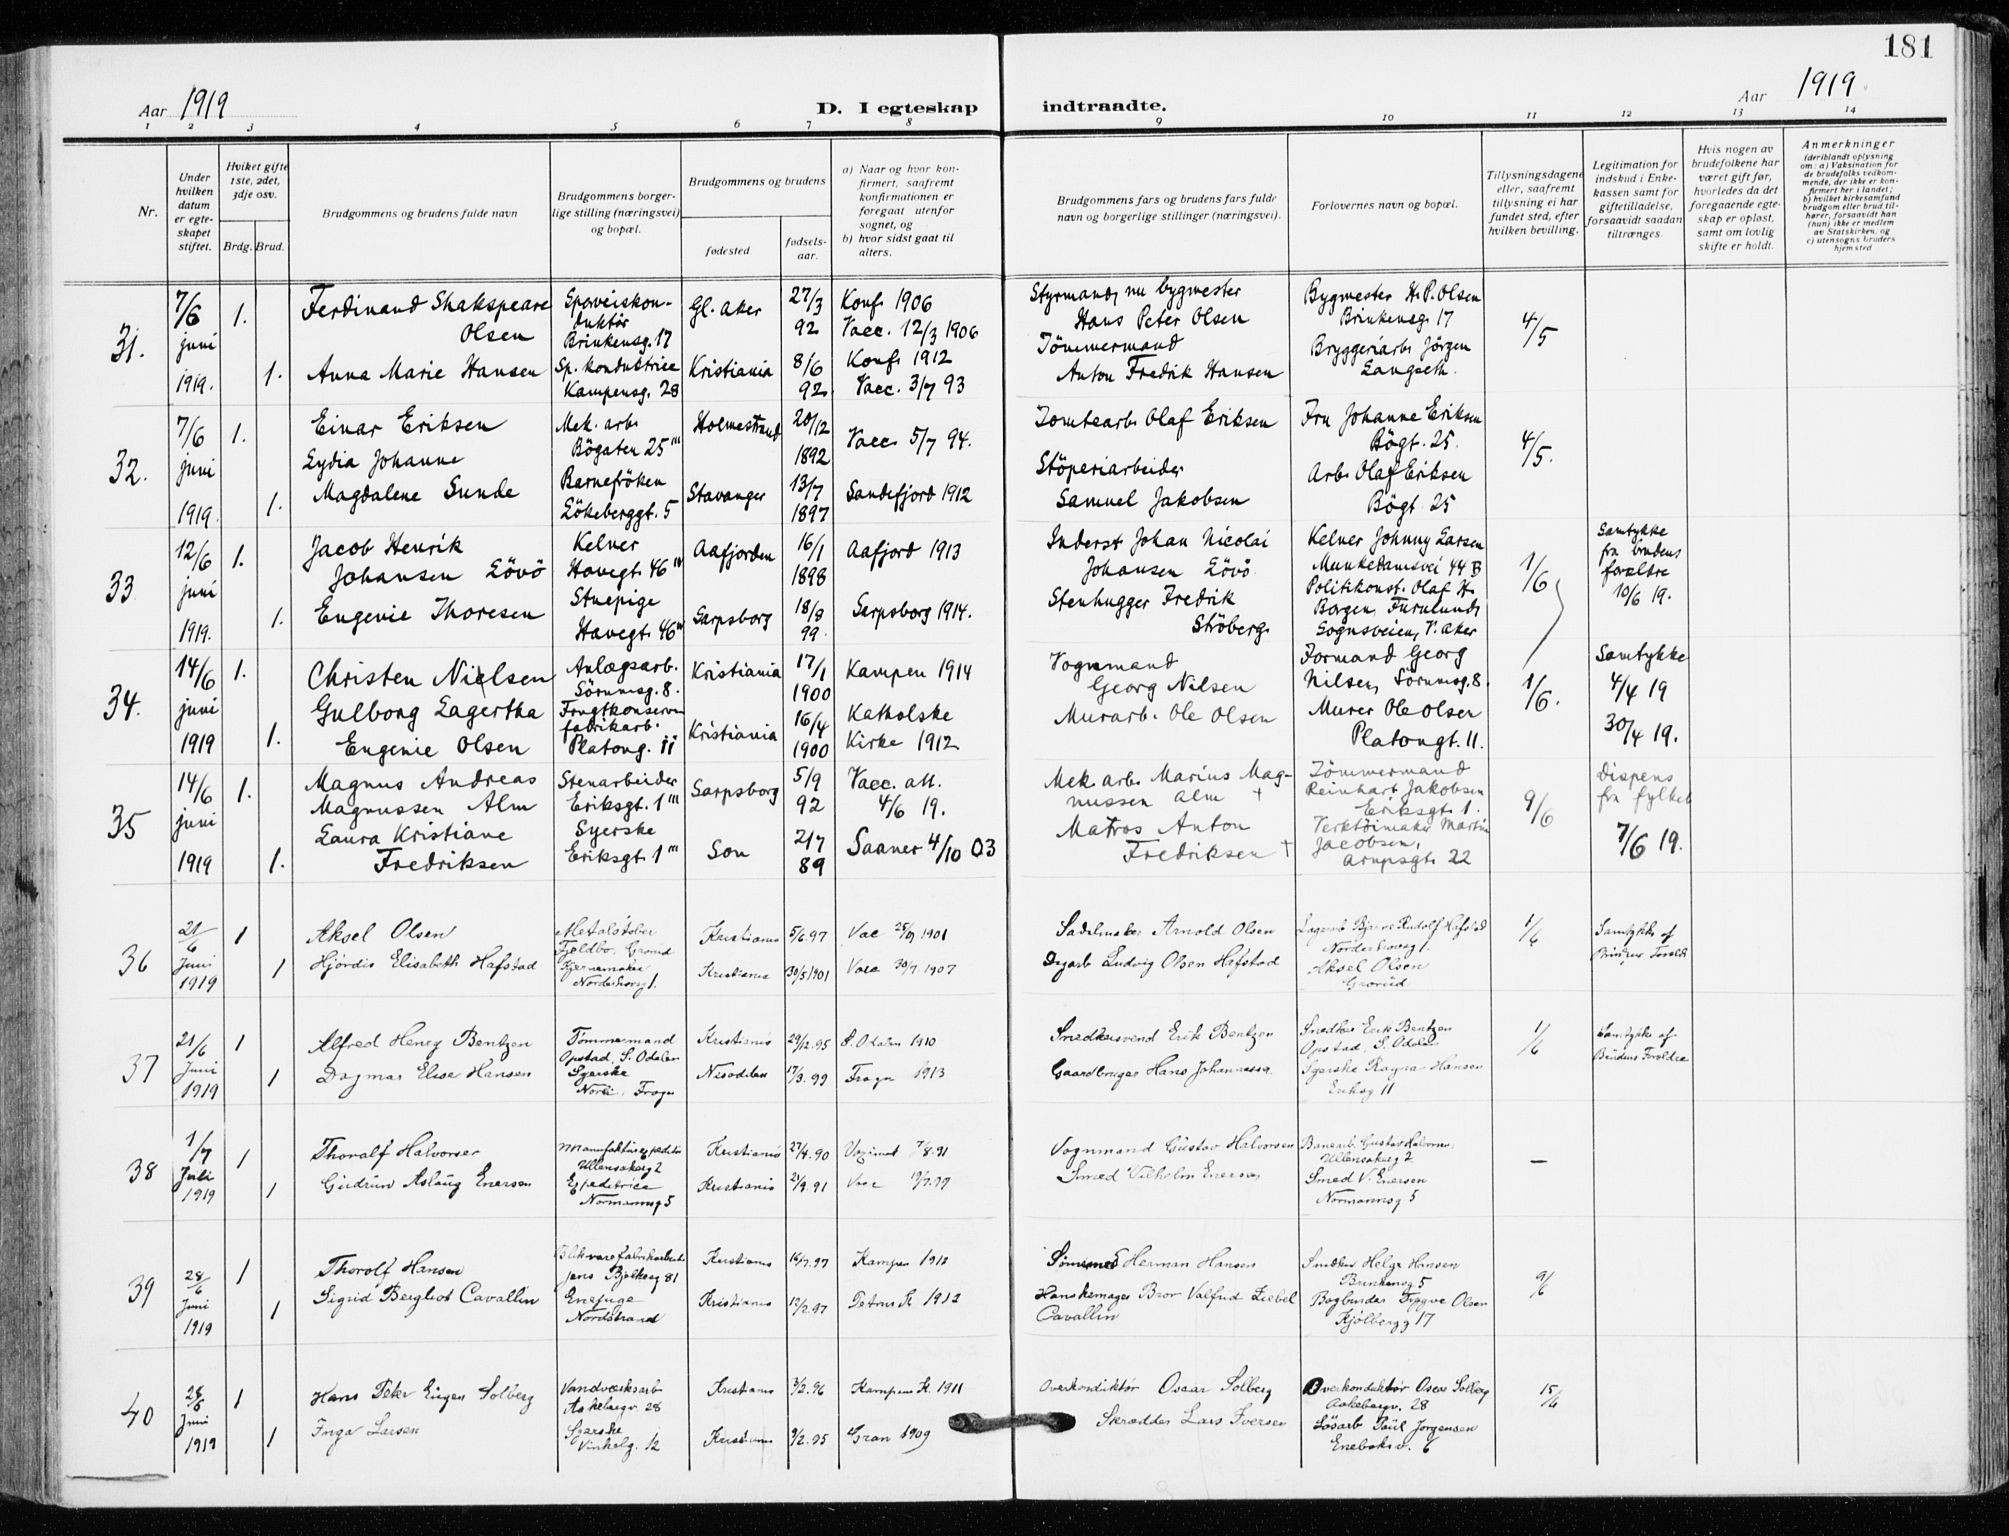 181
Aar 1919
D. I egteskap indtraadte.
Aar 1919
1 2 3 4 5 6 7 8 9 10 11 12 13 14
Nr.
Under hvilken datum er egteskapet stiftet.
Hviket gifte 1ste, 2det, 3dje osv.
Brdg. Brud.
Brudgommens og brudens fulde navn
Brudgommens borgerlige stilling (næringsvei) og bopæl.
Brudgommens og brudens
fødested.
fødselsaar.
a) Naar og hvor konfirmert, saafremt konfirmationen er foregaat utenfor sognet, og
b) hvor sidst gaat til alters.
Brudgommens fars og brudens fars fulde navn og borgerlige stillinger (næringsvei).
Forlovernes navn og bopæl.
Tillysningsdagene eller, saafremt tillysning ei har fundet sted, efter hvilken bevilling.
Legitimation for indskud i Enkekassen samt for giftetilladelse, forsaavidt saadan tiltrænges.
Hvis nogen av brudefolkene har været gift før, hvorledes da det foregaaende egteskap er opløst, samt om lovlig skifte er holdt.
Anmerkninger
(deriblandt oplysning om: a) Vaksination for de brudefolks vedkommende, der ikke er konfirmert her i landet; b) hvilket kirkesamfund brudgom eller brud tilhører, forsaavidt han (hun) ikke er medlem av Statskirken, og c) utensogns bruders hjemsted
31. 7/6 juni 1919. 1. 1.
Ferdinand Shakspeare Olsen
Sporveiskonduktör Brinkensg. 17
Gl. Aker 27/3 92
Konf. 1906 Vacc. 12/3 1906
Styrmand, nu bygmester Hans Peter Olsen
Bygmester H. P. Olsen Brinkensg. 17
4/5
Anna Marie Hansen
Sp. konduktrice Kampensg. 28
Kristiania 8/6 92.
Konf. 1912 Vacc. 3/7 93
Tömmermand Anton Fredrik Hansen
Bryggeriarb. Jörgen Langseth.
32. 7/6 juni 1919. 1. 1.
Einar Eriksen
Mek. arb. Bögaten 25 III
Holmestrand 20/12 1892
Vacc. 5/7 94.
Tomtearb. Olaf Eriksen
Fru Johanne Eriksen Bögt. 25.
4/5.
Lydia Johanne Magdalene Sunde
Barnefröken Lökeberggt. 5
Stavanger 13/7 1897
Sandefjord 1912
Stöperiarbeider Samuel Jakobsen
Arb. Olaf Eriksen Bögt. 25
33 12/6 juni 1919. 1. 1.
Jacob Henrik Johansen Lövö
Kelner Havegt. 46
Aafjorden 16/1 1898
Aafjord 1913
Inderst Johan Nicolai Johansen Lövö.
Kelner Johnny Larsen Munkedamsvei 44 B
1/6
Samtykke fra brudens forældre 10/6 19.
Eugenie Thoresen
Stuepige Havegt. 46
Sarpsborg 18/8 99.
Sarpsborg 1914.
Stenhugger Fredrik Ströberg.
Politikonst. Olaf H. Borgen, Furulund, Sognsveien, V. aker
34. 14/6 juni 1919 1. 1.
Christen Nielsen
Anlægsarb. Sörumsg. 8.
Kristiania 17/1 1900
Kampen 1914
Vognmand Georg Nilsen
Formand Georg Nilsen, Sörumsg. 8.
1/6.
Samtykke 4/4 19
Gulborg Lagertha Eugenie Olsen
Frugtkonserv. fabrikarb. Platoug. 11
Kristiania 16/4 1900
Katholske Kirke 1912
Murarb. Ole Olsen
Murer Ole Olsen Platougt. 11.
30/4 19.
35 14/6 juni 1919 1. 1.
Magnus Andreas Magnussen Alm
Stenarbeider Eriksgt. 1 III
Sarpsborg 5/9 92
Vacc. att. 4/6 19.
Mek. arb. Marius Magnussen Alm †
Tömmermand Reinhart Jakobsen Eriksgt. 1.
9/6
Dispens fra fylket 7/6 19.
Laura Kristiane Fredriksen
Syerske Eriksgt. 1 III
Son 21/7 89
Saaner 4/10 03
Matros Anton Fredriksen †
Verktöimaker Martin Jacobsen, Arupsgt. 22
36 21/6 Juni 1919 1 1
Aksel Olsen
Metalstøber Fjeldbo, Grorud
Kristiania 5/6.97
Vac 25/9 1901
Sadelmaker Arnold Olsen
Lagerarb Bjarne Rudolf Hafstad Norderhovsg 1.
1/6
Samtykke af Brudens Foreldre
Hjördis Elisabeth Hafstad
Norderhovsg 1.
Kristiania 30/5 1901
Vacc 30/7. 1907
Dagarb Ludvig Olsen Hafstad
Aksel Olsen Grorud
37 21/6 Juni 1919 1 1
Alfred Henry Bentzen
Tømmermand Opstad, S. Odalen
Kristiania 29/12.95
S. Odalen 1910
Smedkusvend Erik Bentzen
Smedker Erik Bentzen Opstad, S. Odalen
1/6
Samtykke af Brudens Foreldre
Dagmar Elise Hansen
Syerske Norli, Frogn
Nesodden 17/3. 99
Frogn 1913
Gaardbruger Hans Johannessen
Syerske Ragna Hansen Eriksg 11
38 1/7 Juli 1919 1 1
Thoralf Halvorsen
Manufakturexpeditør Ullensakerg 2
Kristiania 27/4.90
7/8.91
Vognmand Gustav Halvorsen
Banearb. Gustav Halvorsen, Ullensakerg 2
—
Gudrun Aslaug Enersen
Expeditrice Normannsg 5
Kristiania 21/9.91
Vacc
Smed Vilhelm Enersen
Smed V. Enersen Normannsg 5
39 28/6 Juni 1919 1 1
Thorolf Hansen
Blikvarefabrikarbeider Jens Bjelkesg 81
Kristiania 16/7.97
Kampen 1912
Sömand Herman Hansen
Snedker Helge Hansen Brinkensg 5
9/6
Sigrid Bergliot Cavallin
Enepige Nordstrand
Kristiania 12/2.97
Petrus K. 1912
Hanskemager Bror Valfrid Liebel Cavallin
Bogbinder Trygve Olsen Kjølbergg 17
40 28/6 Juni 1919 1 1
Hans Peter Eugen Solberg
Vandværksarb Aakebergv. 28
Kristiania 3/2.96
Kampens K. 1911
Overkonduktør Oscar Solberg
Overkonduktør Oscar Solberg Aakebergv. 28
15/6
Inga Larsen
Syerske Vinkelg. 12
Kristiania 9/2.95
Gran 1909
Skrædder Lars Iversen
Løsarb Paul Jorgensen Enebakv. 6